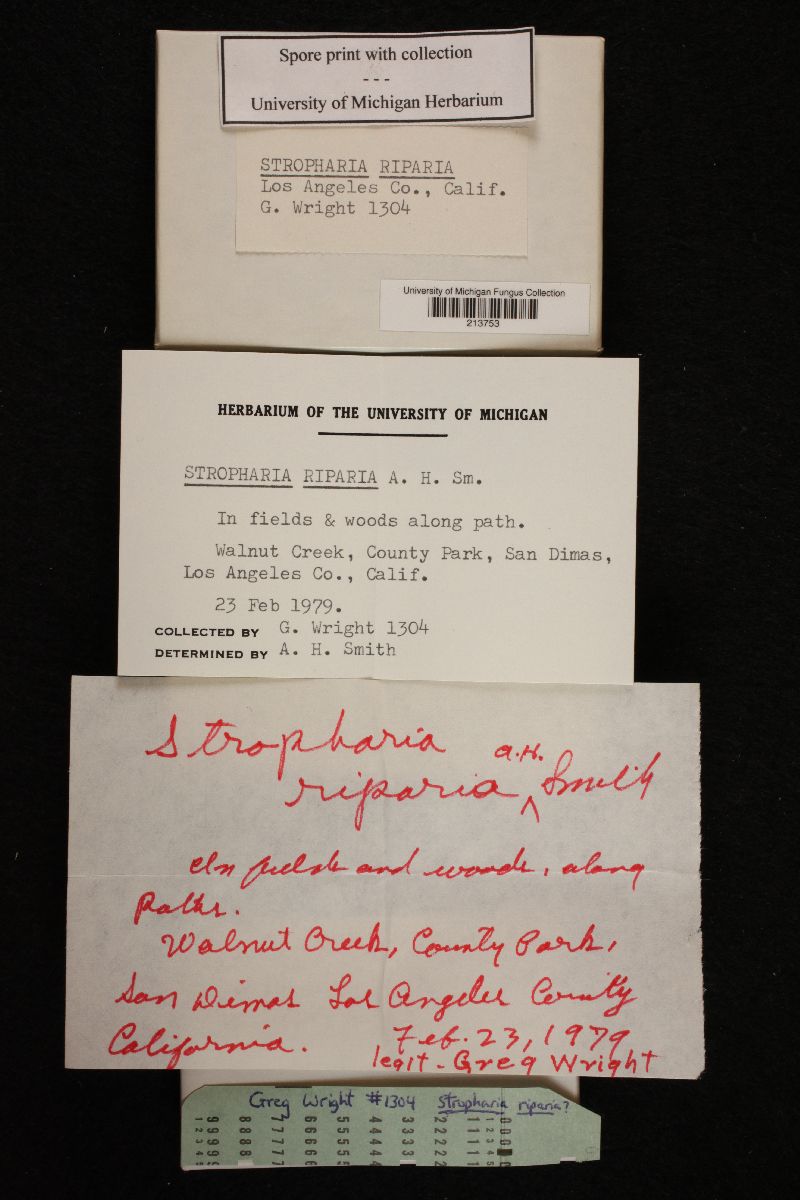 Spore print with collection
- - -
University of Michigan Herbarium
STROPHARIA RIPARIA
Los Angeles Co., Calif.
G. Wright 1304
University of Michigan Fungus Collection
213753
HERBARIUM OF THE UNIVERSITY OF MICHIGAN
STROPHARIA RIPARIA A. H. Sm.
In fields & woods along path.
Walnut Creek, County Park, San Dimas,
Los Angeles Co., Calif.
23 Feb 1979.
COLLECTED BY G. Wright 1304
DETERMINED BY A. H. Smith
Stropharia
riparia a.H. Smith
In fields and woods, along
paths.
Walnut Creek, County Park,
San Dimas Los Angeles County
California. Feb. 23, 1979
legit - Greg Wright
Greg Wright #1304 Stropharia riparia?